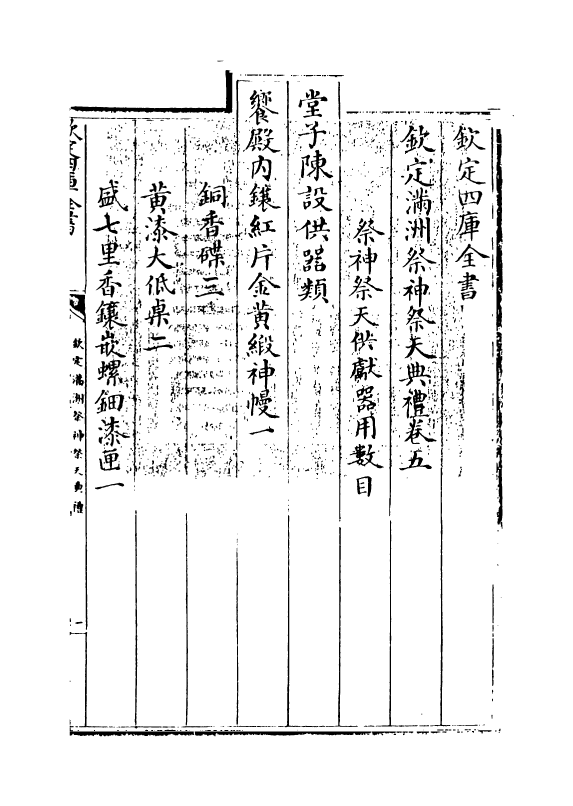 欽定四庫全書
欽定滿洲祭神祭天典禮卷五
祭神祭天供獻器用數目
堂子陳設供器類
饗殿内鑲紅片金黄緞神幔一
銅香碟三
黄漆大低桌二
盛七里香鑲嵌螺鈿漆匣一
欽定滿洲祭神祭天典禮